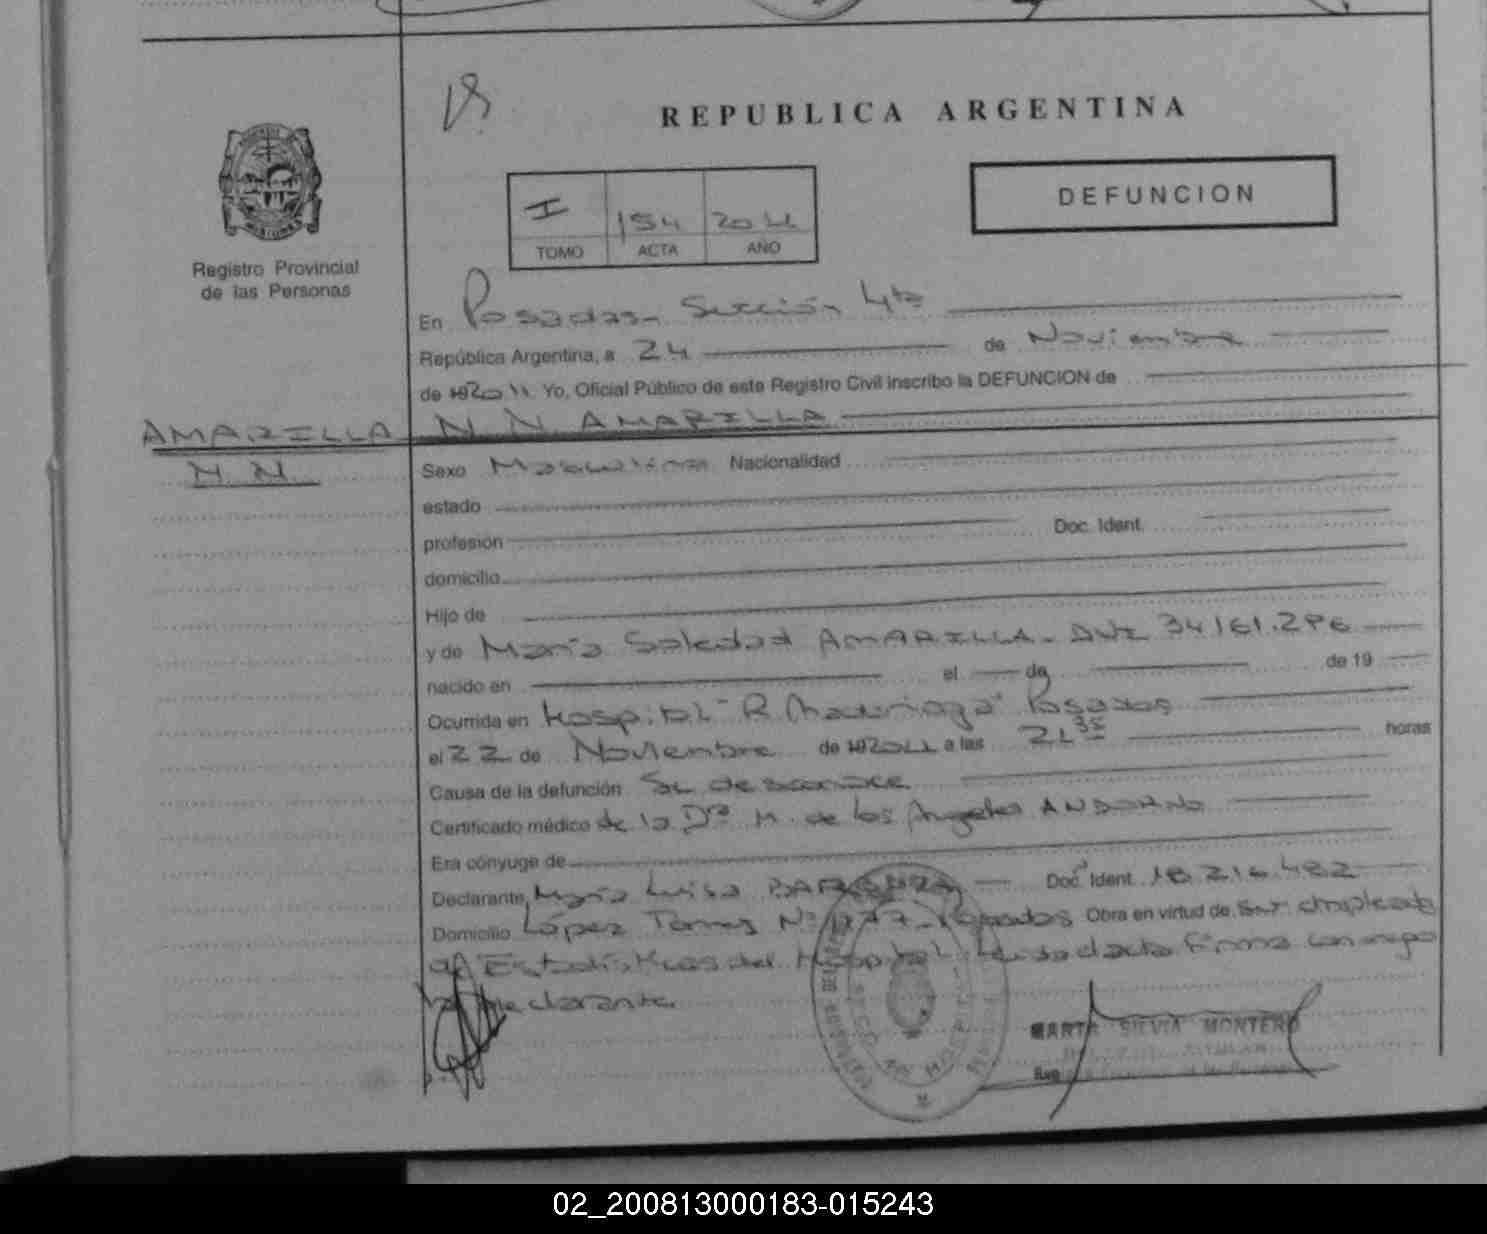 REPUBLICA ARGENTINA
DEFUNCION
I 154 2011
TOMO ACTA AÑO
Registro Provincial
de las Personas
En Posadas - Sección 4ta
República Argentina, a 24 de Noviembre
de 192011 Yo, Oficial Público de este Registro Civil inscribo la DEFUNCION de
AMARILLA N.N. AMARILLA
N.N. Sexo Masculino Nacionalidad
estado
profesión Doc. Ident.
domicilio
Hijo de
y de María Soledad AMARILLA - DNI 34161.296
nacido en el de de 19
Ocurrida en Hospital "R. Madariaga" Posadas
el 22 de Noviembre de 192011 a las 21 35 horas
Causa de la defunción Se desconoce
Certificado médico de la Dra M. de los Angeles ANDORNO
Era cónyuge de
Declarante María Luisa Doc. Ident. 18.216.482
Domicilio López Torres Nº 1177 - Posadas Obra en virtud de Ser empleada
de Estadísticas del Hospital - Leida el acta firma conmigo
la declarante
MARTA SILVIA MONTERO
02_200813000183-015243